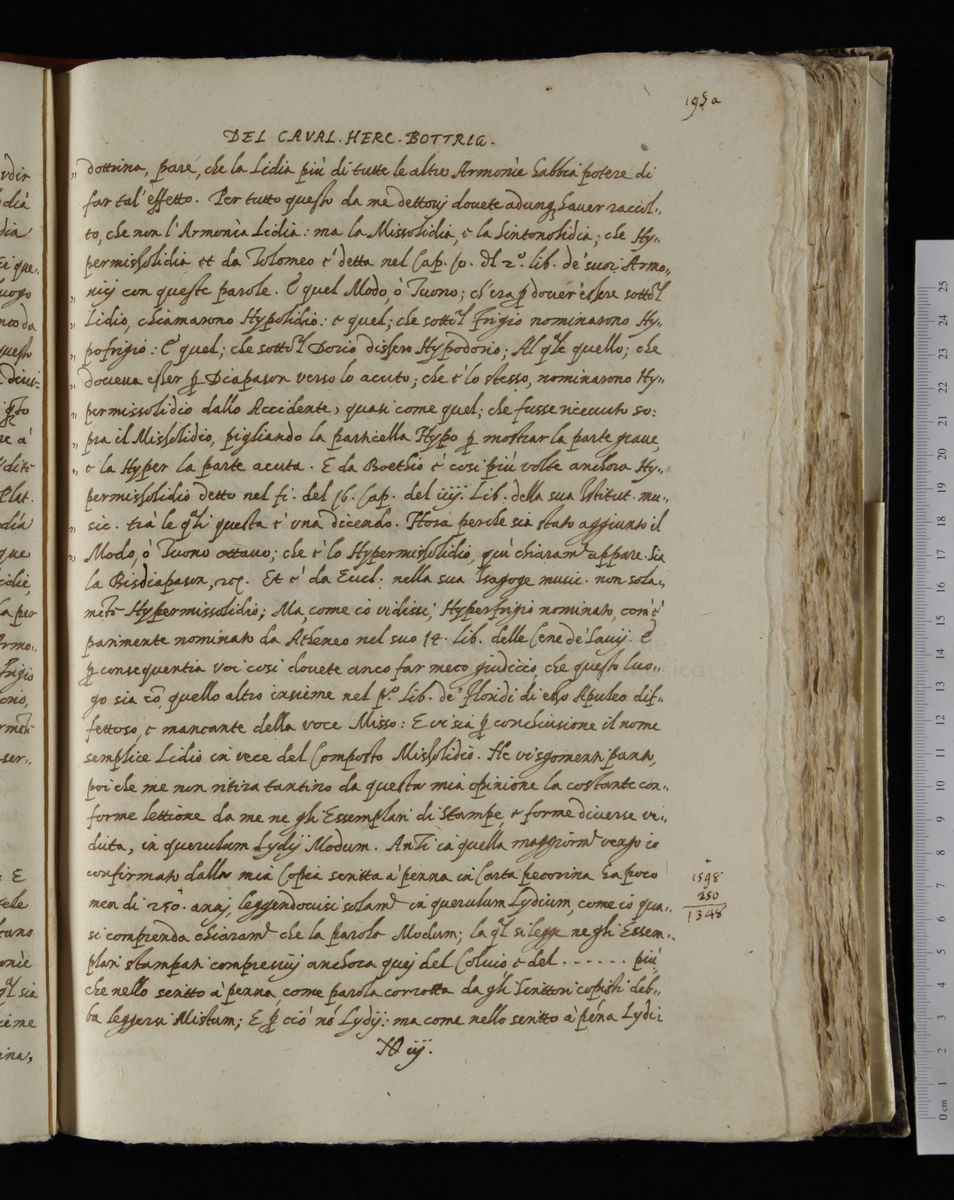 195a
DEL CAVAL. HERC. BOTTRIG.
„ dottrina, pare, che la Lidia più di tutte le altre Armonie habbia potere di
far tal'effetto. Per tutto questo da me dettovi dovete adunq3 haver raccol„
to, che non l'Armonia Lidia: ma la Missolidia, e la Sintonolidia; che Hy„
permissolidia et da Tolomeo e' detta nel Cap. 10. dl 2.º lib. de' suoi Armo„
„ nij con queste parole. E quel Modo, ò Tuono; ch'era p dover'essere sotto'l
„ Lidio, chiamarono Hypolidio: e quel; che sotto'l frigio nominarono Hy„
„ pofrigio: E quel; che sotto'l Dorio dissero Hypodorio; Al qle quello; che
„ doveva esser p Diapason verso lo acuto; che è lo stesso, nominarono Hy„
„ permissolidio dallo Accidente, quasi come quel; che fusse ricevuto so:
„ pra il Missolidio, pigliando la particella Hypo p mostrar la parte grave,
„ e la Hyper la parte acuta. E da Boethio è cosi più volte anchora Hy„
permissolidio detto nel fi. del 16. Cap. del iiij. Lib. della sua Istitut. mu„
„ sic. trà le qli questa è una dicendo. Hora perche sia stato aggiunto il
„ Modo, ò Tuono ottavo; che è lo Hypermissolidio, quì chiaram.e appare. Sia
la Bisdiapason, Et è da Eucl. nella sua Isagoge music. non sola„
mēte Hypermissolidio; Ma, come io vidissi, Hyperfrigio nominato, com'è
parimente nominato da Atheneo nel suo 14. lib. delle Cene de' Savij. E
p consequentia voi cosi dovete anco far meco giudicio, che questo luo„
go sia cō quello altro insieme nel p.º lib. de' floridi di esso Apuleo dif„
fettoso, e mancante della voce Misso: E vi sia p conclusione il nome
semplice Lidio in vece del Composto Missolidio. Ne visgomenti punto,
poi che me non ritira tantino da questa mia opinione la costante con„
forme lettione da me ne gli Essemplari di Stampe, e forme diverse ve„
duta, in querulum Lydij Modum. Anzi in quella maggiorm.e vengo io
confirmato dalla mia Copia scritta à penna in Carta pecorina ha poco
men di 250. anni, leggendocisi solam.e in querulum Lydium, come io qua„
si comprenda chiaram.e che la parola Modum; la ql si legge ne gli Essem„
plari stampati compresivi anchora quei del Colvio e del . . . . . . più
che nello scritto à penna, come parola corrotta da gli Scrittori copisti deb„
ba leggersi Mistum; E p ciò nō Lydij: ma come nello scritto à pēna Lydi:
1598
250
1348